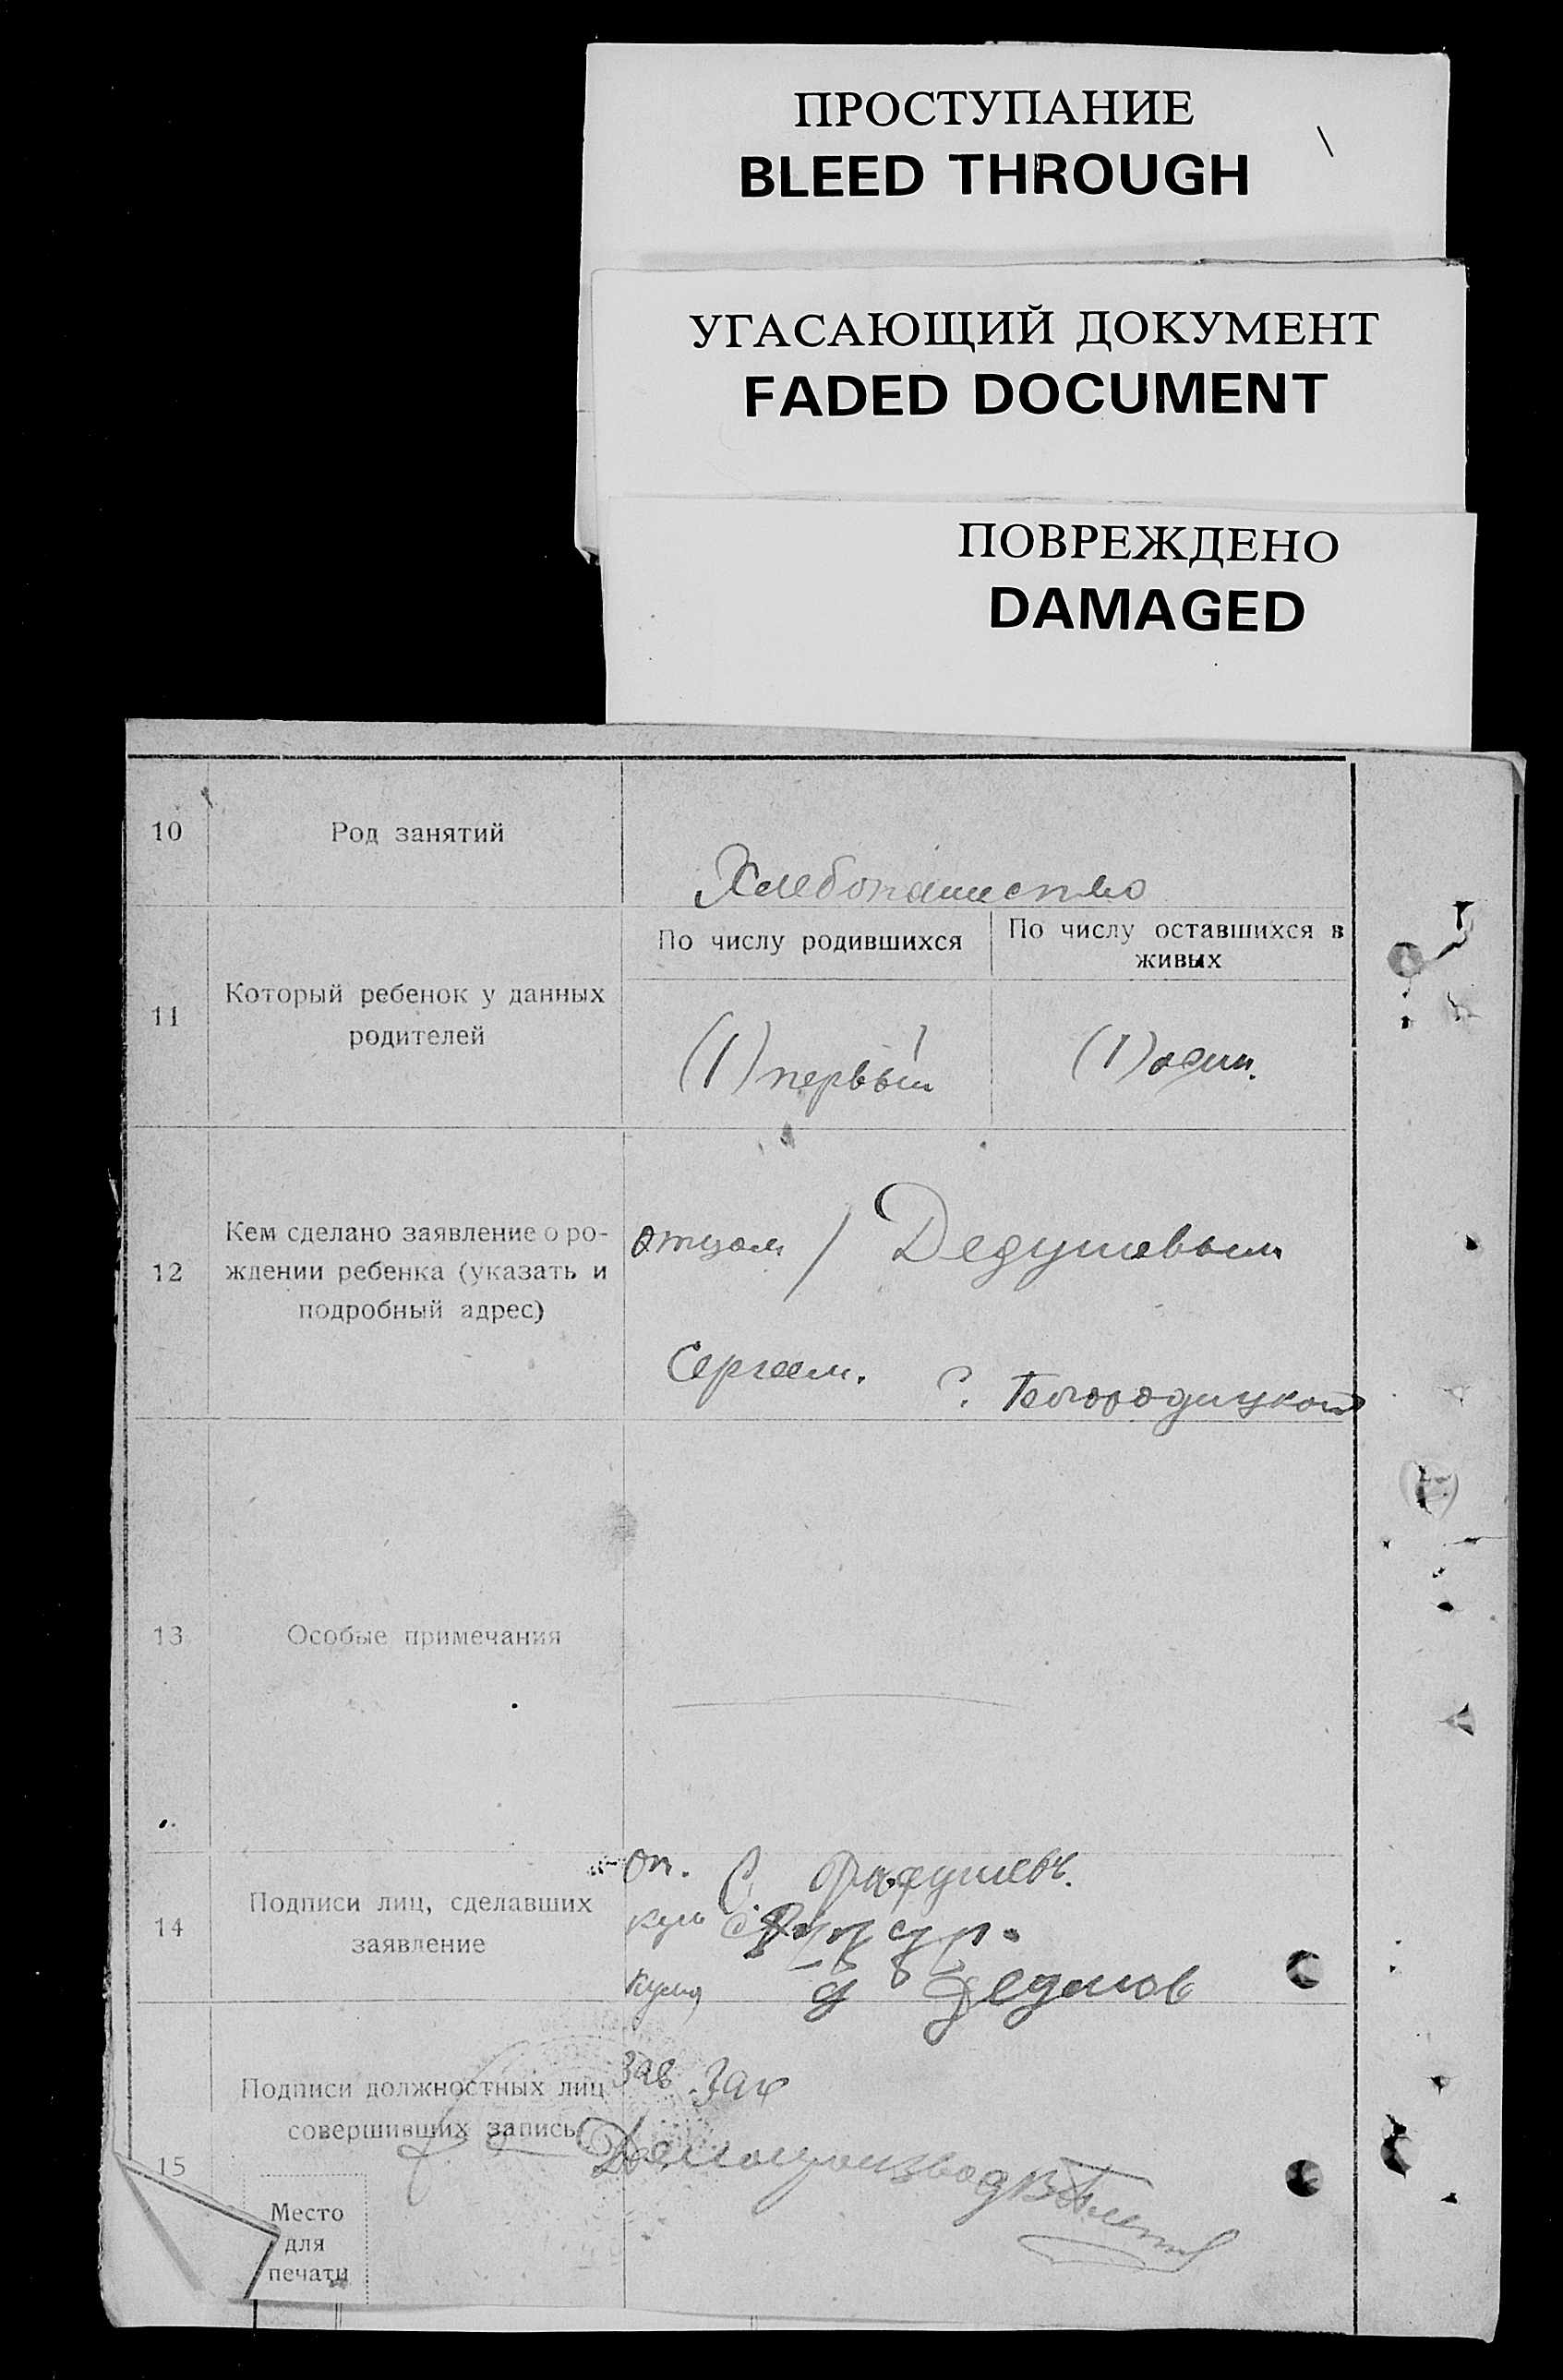 ПРОСТУПАНИЕ
BLEED THROUGH
УГАСАЮЩИЙ ДОКУМЕНТ
FADED DOCUMENT
ПОВРЕЖДЕНО
DAMAGED
10
Род занятий
Хлебопашество
11
Который ребенок у данных
родителей
По числу родившихся
По числу оставшихся в
живых
(1) первый
(1) один.
12
Кем сделано заявление о ро-
ждении ребенка (указать и
подробный адрес)
Отцом / Дедушевым
Сергеем. С. Богородицкой
13
Особые примечания
14
Подписи лиц, сделавших
заявление
от. С
кум
кума
15
Подписи должностных лиц
совершивших запись
Зав. Заг
Делопроизвод
Место
для
печати